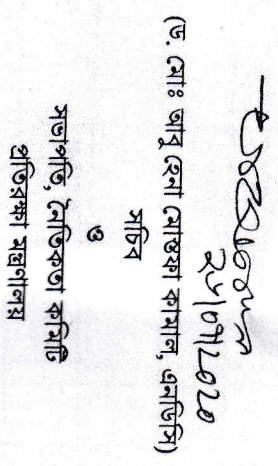 ২৮/০৭/২০২০
(ড. মোঃ আবু হেনা মোস্তফা কামাল, এনডিসি)
সচিব
ও
সভাপতি, নৈতিকতা কমিটি
প্রতিরক্ষা মন্ত্রণালয়